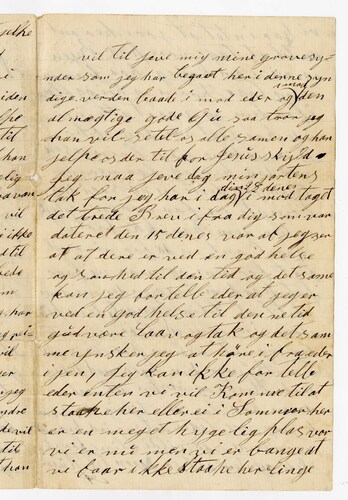 vil til jeve mig mine grovesy-
nder som jeg har begaaet her i denne syn
dige verden baade i mod eder og mod den
almægtige gode Gu saa tror jeg
han vil se til os alle samen og han
jelpe os der til for Jesus skjyld.
Jeg maa jeve dag min jartens
tak for jeg har i dag dind 2 denes i mod taget
det trede Brev i fra dig som var
dateret den 15 denes var at jeg ser
at at dere er ved en god helse
og sonhed til den tid og det same
kan jeg fortelle eder at jeg er
ved en god helse til den ne tid
gud være Laav og tak og det sam
me ynsker jeg at høre i fra eder
i jen, Jeg kan ikke for telle
eder enten vi vil Komme til at
staape her eller ei i Sommer her
er en meget hygelig plas vor
vi er nu men vi er bange at
vi faar ikke staape her linge